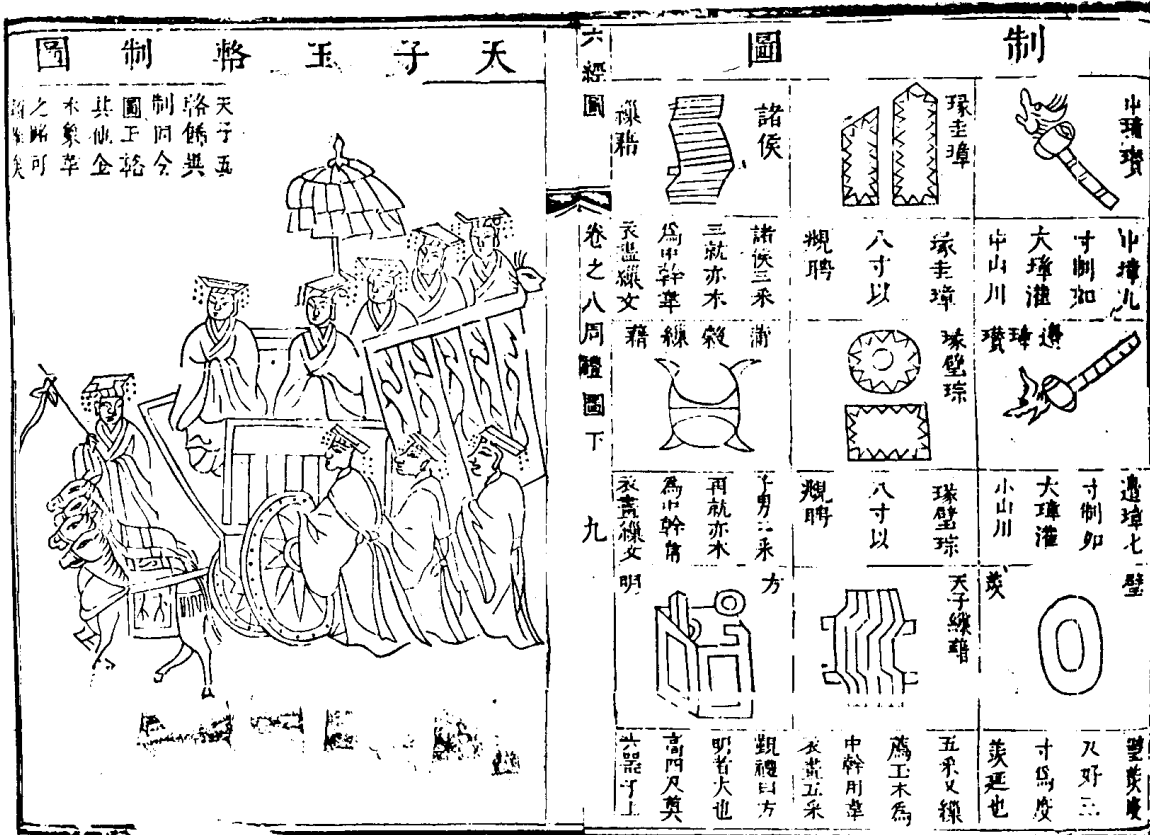 制
圖
中璋瓚
中璋九
寸制如
大璋灌
中山川
瑑圭璋
瑑圭璋
八寸以
覜聘
諸侯
繅藉
諸侯三采
三就亦木
爲中幹革
衣畫繅文
邊璋瓚
邊璋七
寸制如
大璋灌
小山川
瑑璧琮
瑑璧琮
八寸以
覜聘
蒲
穀
繅
藉
子男二采
再就亦木
爲中幹
衣畫繅文
璧
羨
璧羨度
尺好三
寸爲度
羨延也
天子繅藉
五采文繅
薦玉木爲
中幹用韋
衣畫五采
方
明
覲禮曰方
明者木也
高四尺奠
六器于上
六經圖
卷之八周禮圖下
九
天子玉輅制圖
天子五
輅飾與
制同今
圖玉輅
其他金
木象革
之輅可